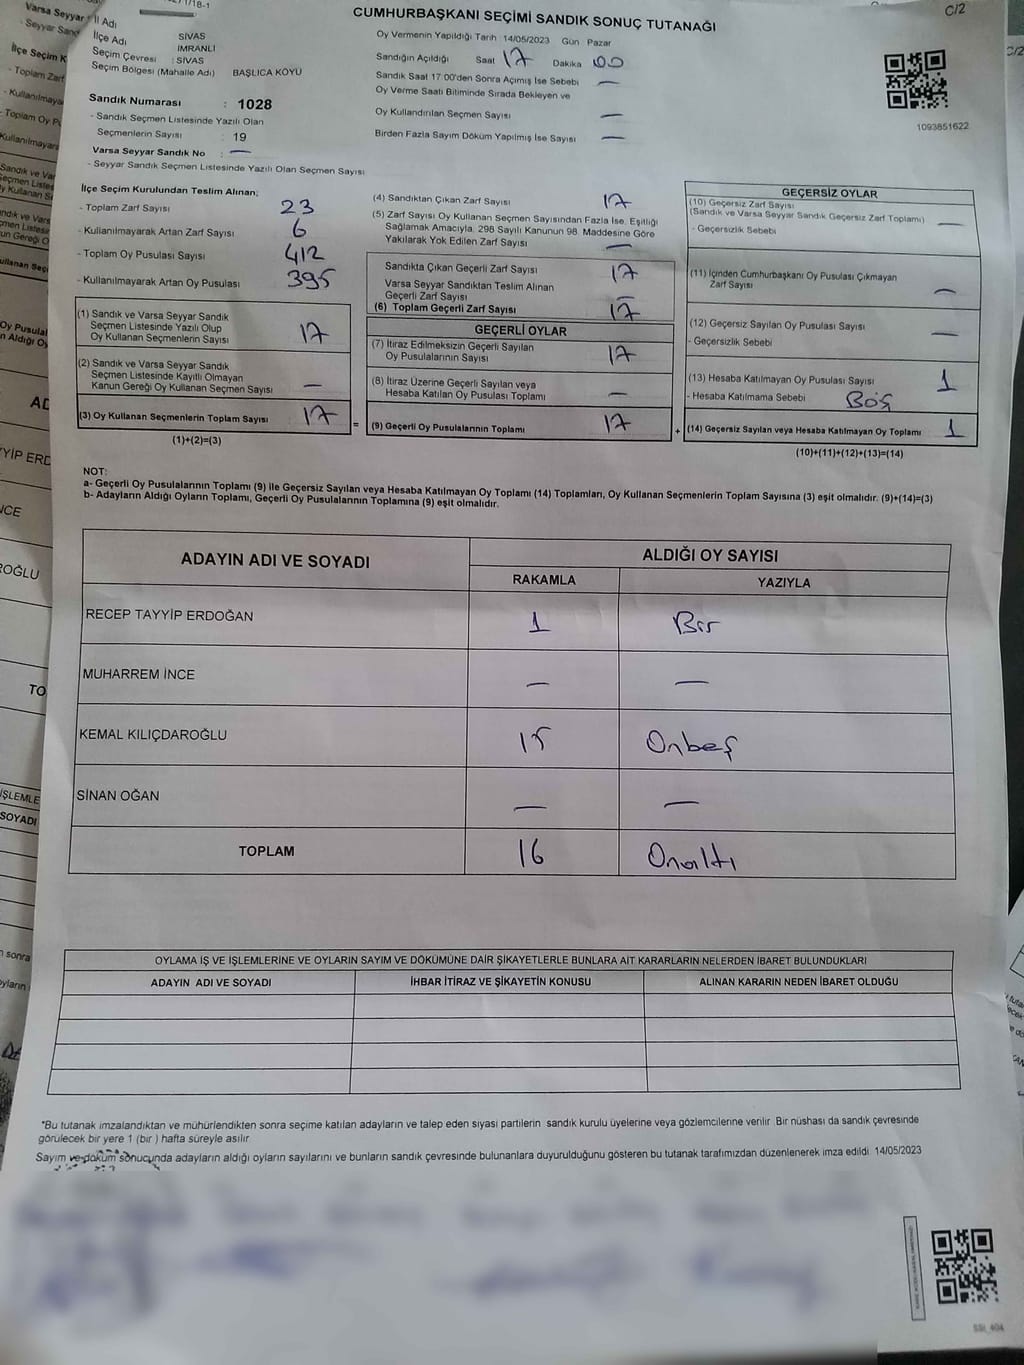 C/2
CUMHURBAŞKANI SEÇİMİ SANDIK SONUÇ TUTANAĞI
İl Adı SİVAS
İlçe Adı İMRANLI
Seçim Çevresi : SİVAS
Seçim Bölgesi (Mahalle Adı) BAŞLICA KÖYÜ
Sandık Numarası : 1028
- Sandık Seçmen Listesinde Yazılı Olan
Seçmenlerin Sayısı : 19
Varsa Seyyar Sandık No : —
- Seyyar Sandık Seçmen Listesinde Yazılı Olan Seçmen Sayısı
Oy Vermenin Yapıldığı Tarih : 14/05/2023 Gün Pazar
Sandığın Açıldığı Saat 17 Dakika 00
Sandık Saat 17:00'den Sonra Açılmış İse Sebebi —
Oy Verme Saati Bitiminde Sırada Bekleyen ve
Oy Kullandırılan Seçmen Sayısı —
Birden Fazla Sayım Döküm Yapılmış İse Sayısı —
1093851622
İlçe Seçim Kurulundan Teslim Alınan;
- Toplam Zarf Sayısı 23
- Kullanılmayarak Artan Zarf Sayısı 6
- Toplam Oy Pusulası Sayısı 412
- Kullanılmayarak Artan Oy Pusulası 395
(1) Sandık ve Varsa Seyyar Sandık
Seçmen Listesinde Yazılı Olup
Oy Kullanan Seçmenlerin Sayısı 17
(2) Sandık ve Varsa Seyyar Sandık
Seçmen Listesinde Kayıtlı Olmayan
Kanun Gereği Oy Kullanan Seçmen Sayısı —
(3) Oy Kullanan Seçmenlerin Toplam Sayısı 17
(1)+(2)=(3)
(4) Sandıktan Çıkan Zarf Sayısı 17
(5) Zarf Sayısı Oy Kullanan Seçmen Sayısından Fazla İse, Eşitliği
Sağlamak Amacıyla, 298 Sayılı Kanunun 98. Maddesine Göre
Yakılarak Yok Edilen Zarf Sayısı —
Sandıkta Çıkan Geçerli Zarf Sayısı 17
Varsa Seyyar Sandıktan Teslim Alınan
Geçerli Zarf Sayısı —
(6) Toplam Geçerli Zarf Sayısı 17
GEÇERLİ OYLAR
(7) İtiraz Edilmeksizin Geçerli Sayılan
Oy Pusulalarının Sayısı 17
(8) İtiraz Üzerine Geçerli Sayılan veya
Hesaba Katılan Oy Pusulası Toplamı —
= (9) Geçerli Oy Pusulalarının Toplamı 17
GEÇERSİZ OYLAR
(10) Geçersiz Zarf Sayısı
(Sandık ve Varsa Seyyar Sandık Geçersiz Zarf Toplamı) —
- Geçersizlik Sebebi
(11) İçinden Cumhurbaşkanı Oy Pusulası Çıkmayan
Zarf Sayısı —
(12) Geçersiz Sayılan Oy Pusulası Sayısı —
- Geçersizlik Sebebi
(13) Hesaba Katılmayan Oy Pusulası Sayısı 1
- Hesaba Katılmama Sebebi Boş
+ (14) Geçersiz Sayılan veya Hesaba Katılmayan Oy Toplamı 1
(10)+(11)+(12)+(13)=(14)
NOT:
a- Geçerli Oy Pusulalarının Toplamı (9) ile Geçersiz Sayılan veya Hesaba Katılmayan Oy Toplamı (14) Toplamları, Oy Kullanan Seçmenlerin Toplam Sayısına (3) eşit olmalıdır. (9)+(14)=(3)
b- Adayların Aldığı Oyların Toplamı, Geçerli Oy Pusulalarının Toplamına (9) eşit olmalıdır.
ADAYIN ADI VE SOYADI ALDIĞI OY SAYISI
RAKAMLA YAZIYLA
RECEP TAYYİP ERDOĞAN 1 Bir
MUHARREM İNCE — —
KEMAL KILIÇDAROĞLU 15 Onbeş
SİNAN OĞAN — —
TOPLAM 16 Onaltı
OYLAMA İŞ VE İŞLEMLERİNE VE OYLARIN SAYIM VE DÖKÜMÜNE DAİR ŞİKAYETLERLE BUNLARA AİT KARARLARIN NELERDEN İBARET BULUNDUKLARI
ADAYIN ADI VE SOYADI İHBAR İTİRAZ VE ŞİKAYETİN KONUSU ALINAN KARARIN NEDEN İBARET OLDUĞU
"Bu tutanak imzalandıktan ve mühürlendikten sonra seçime katılan adayların ve talep eden siyasi partilerin sandık kurulu üyelerine veya gözlemcilerine verilir. Bir nüshası da sandık çevresinde
görülecek bir yere 1 (bir ) hafta süreyle asılır.
Sayım ve döküm sonucunda adayların aldığı oyların sayılarını ve bunların sandık çevresinde bulunanlara duyurulduğunu gösteren bu tutanak tarafımızdan düzenlenerek imza edildi. 14/05/2023